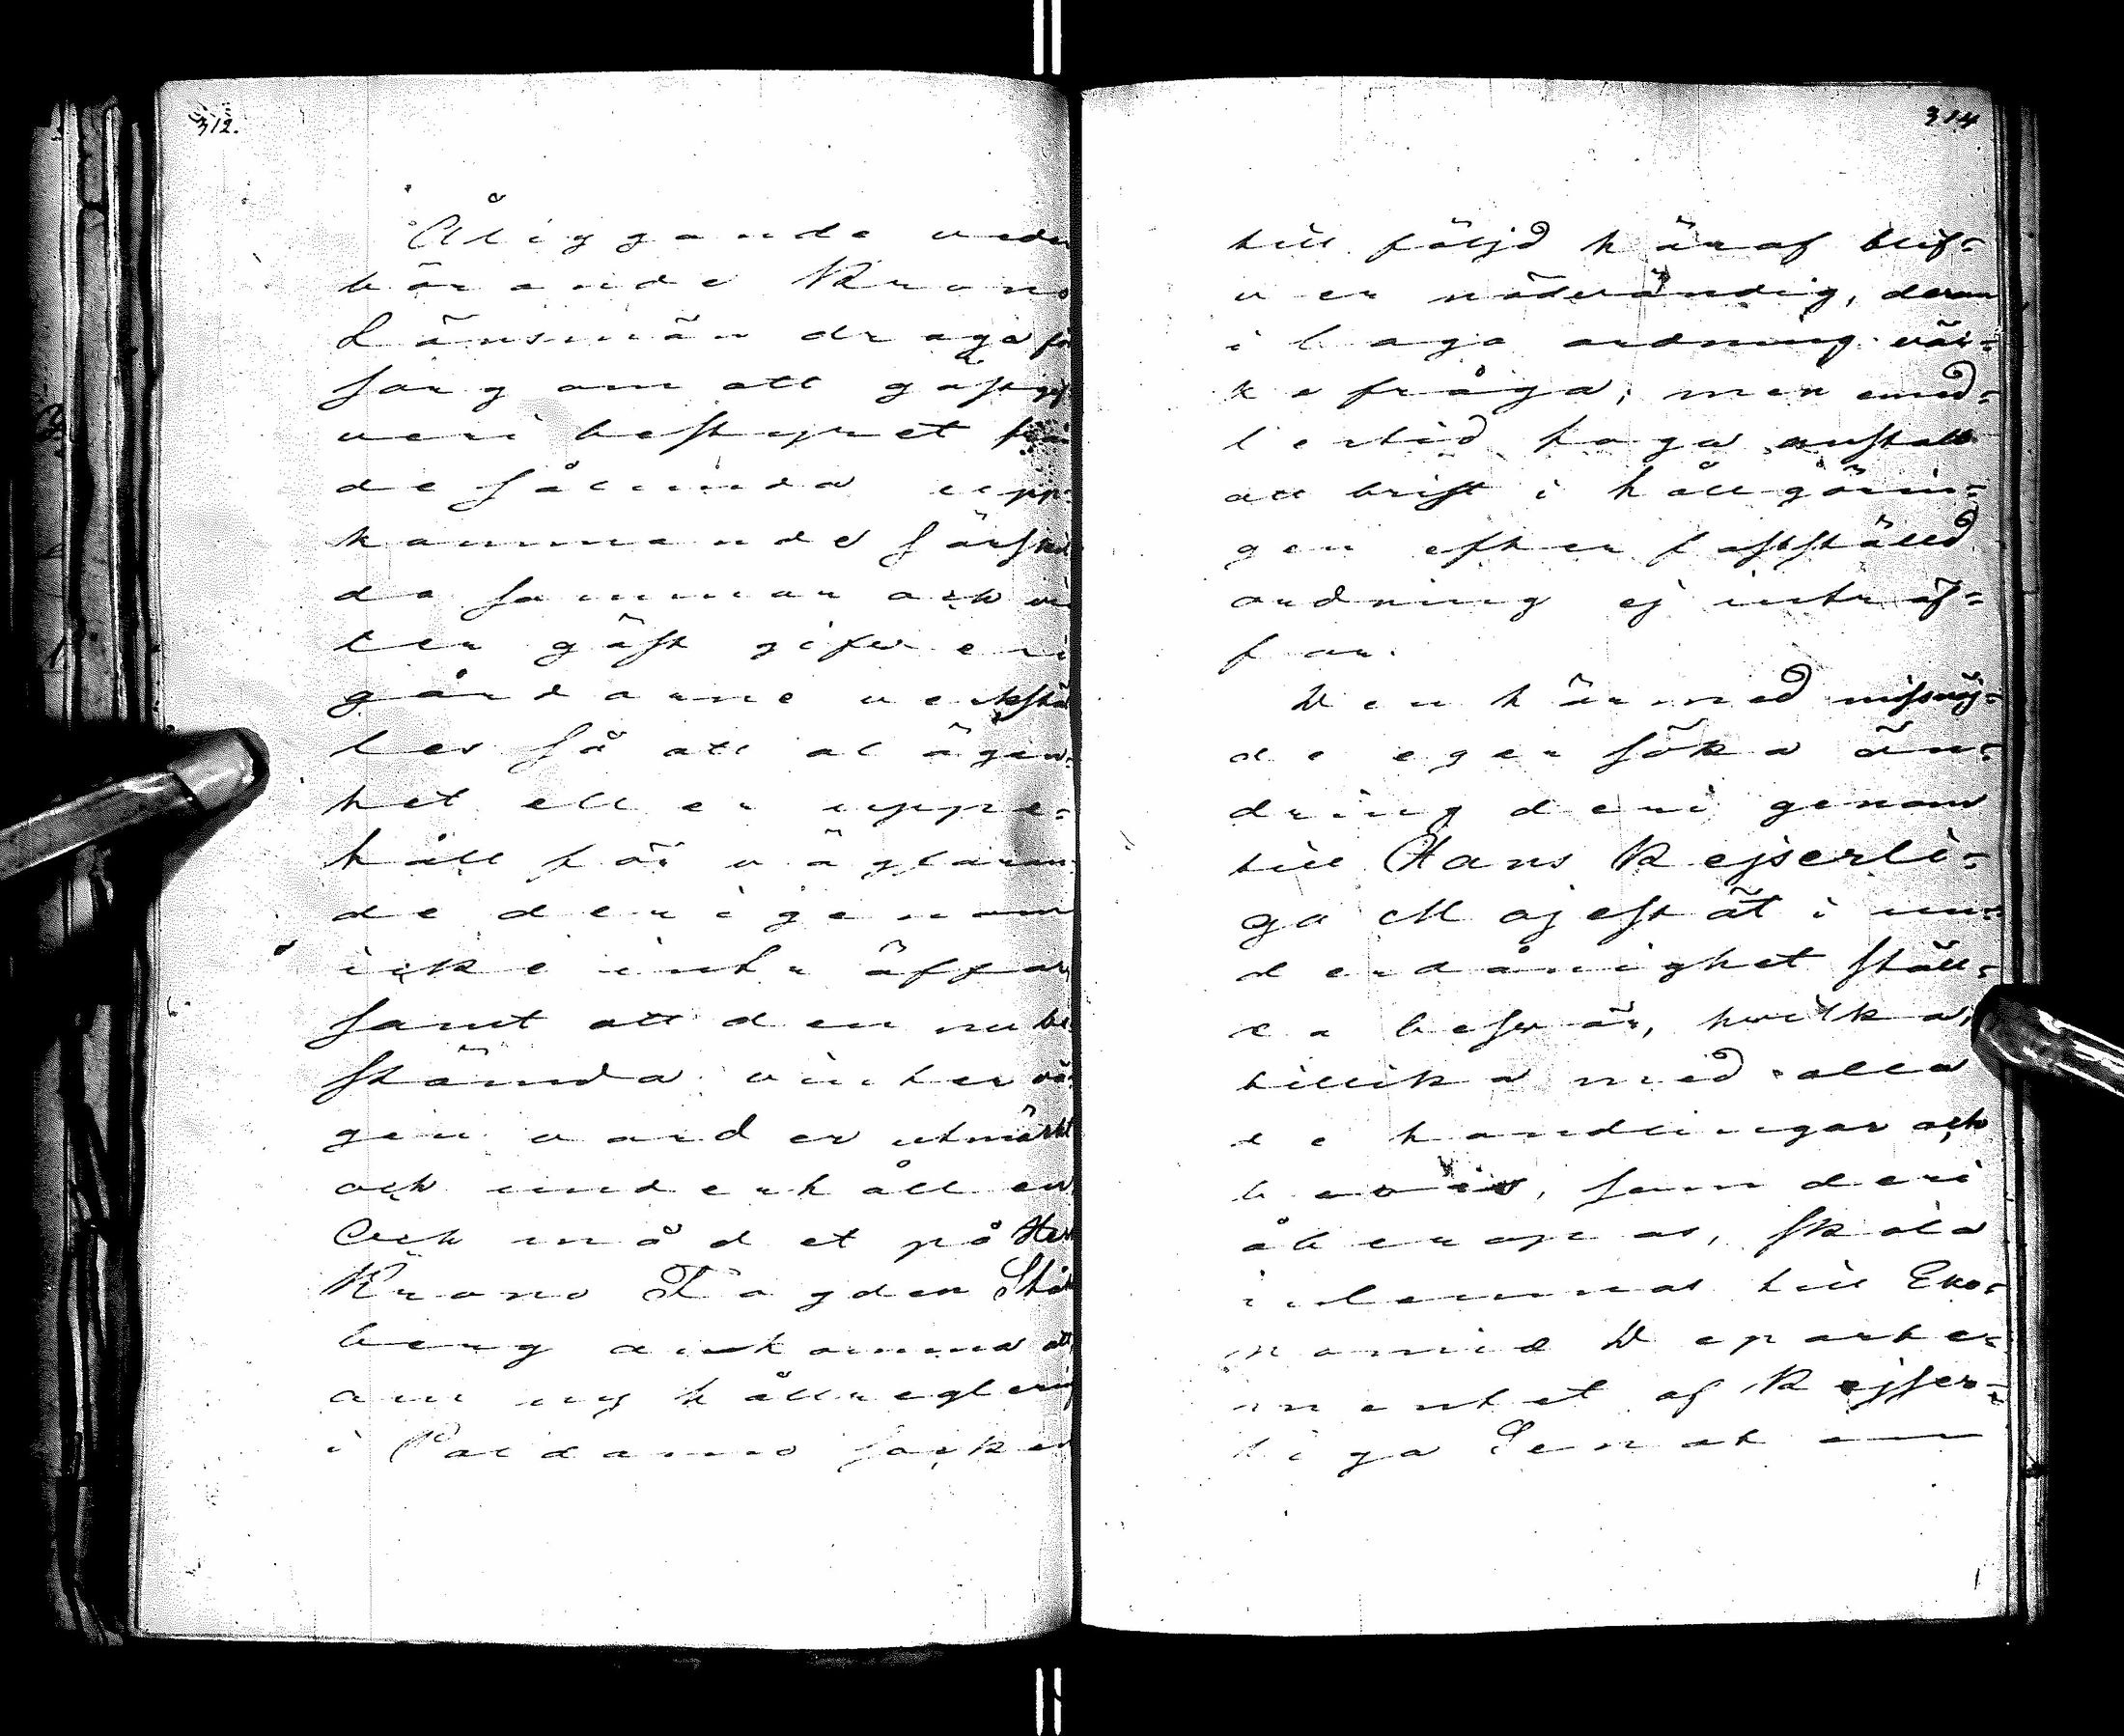 312.
Åliggande veder
börande Krono
Länsmän draga för
sorg om att gästgif
veri bestyret från
de sålunda upp-
kommande särskil
da sommar och vin
ter gästgifveri
gårdarne verkstäl
les så att olägen-
het eller uppe-
håll för vägfaran
de derigenom
icke inträffar
samt att den nu be
stämda vinter vä-
gen varder utmärkt
och underhållen
Och må det på Herr
Krono Fogden Stål
berg ankomma att
om ny hållreglering
i Paldamo socken
314
till följd häraf blif-
ver nödvändig, derom
i laga ordning väc-
ka fråga; men emed-
lertid foga anstalt
att brist i hållgörin-
gen efter fastställd
ordning ej inträf-
far.
Den härmed missnöj-
de eger söka än-
dring deri genom
till Hans Kejserli-
ga Majestät i un-
derdånighet ställ-
ta besvär, hvilka,
tillika med alla
de handlingar och
bevis, som deri
åberopas, skola
inlemnas till Eko-
nomie Departe-
mentet af Kejser-
liga Senaten